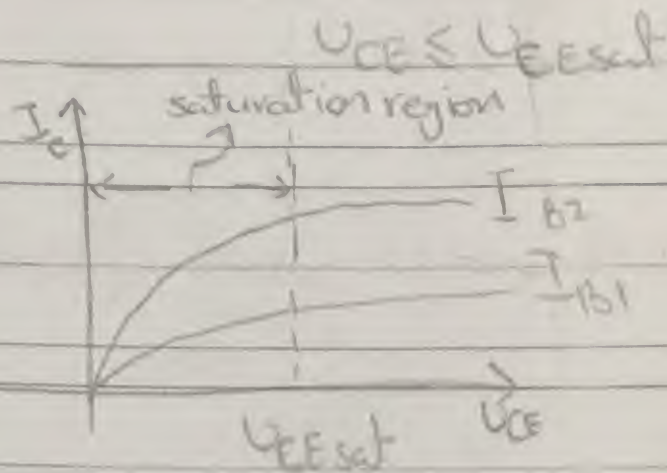 U_CE ≤ U_EEsat
saturation region
I_c
I_B2
I_B1
U_EEsat
U_CE